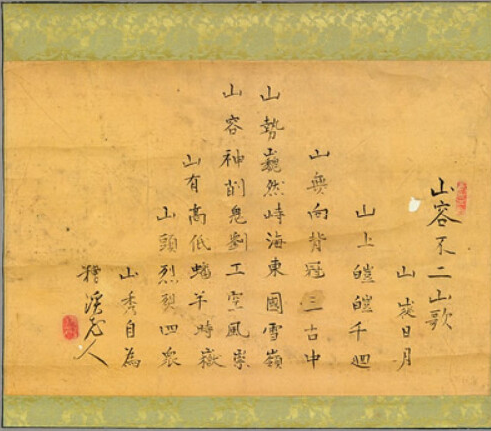 山容不二山歌
山日月
山上皚皚千迴
山無向背冠三古中
山勢巍然峙海東國雪嶺
山容神削鬼工空風崇
山有高低蟠羊時嶽
山頭烈烈四衆
山秀自為
溪老人